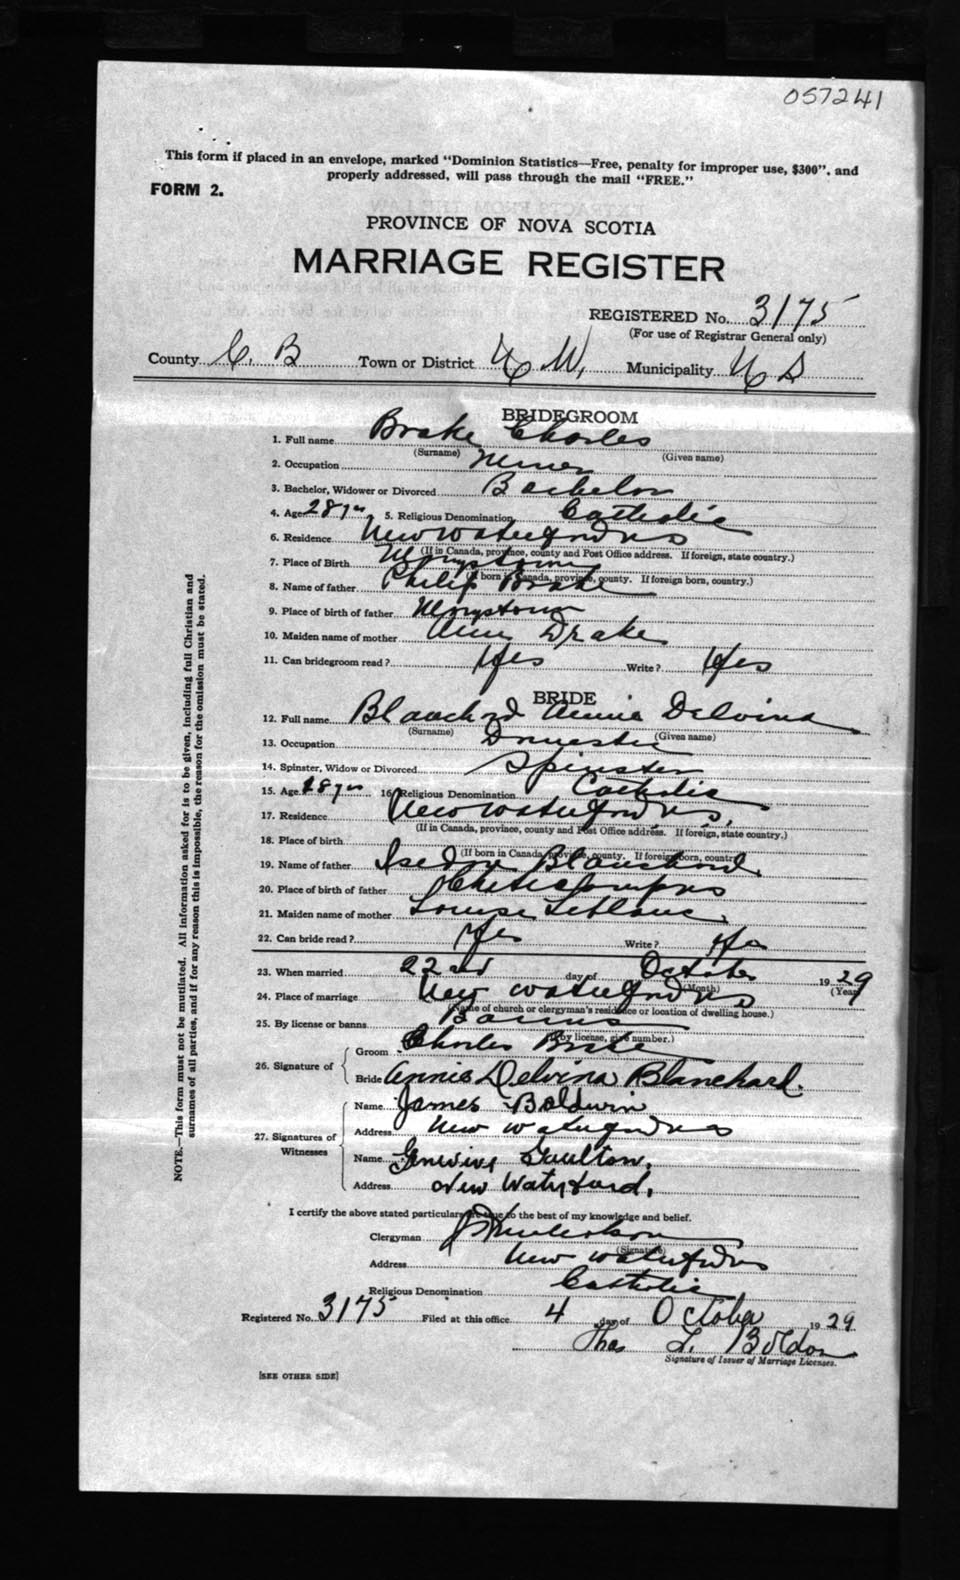 057241
This form if placed in an envelope, marked "Dominion Statistics—Free, penalty for improper use, $300", and
properly addressed, will pass through the mail "FREE."
FORM 2.
PROVINCE OF NOVA SCOTIA
MARRIAGE REGISTER
REGISTERED No. 3175
(For use of Registrar General only)
County C. B Town or District N. W. Municipality N S
BRIDEGROOM
1. Full name Brake Charles
(Surname) (Given name)
2. Occupation Miner
3. Bachelor, Widower or Divorced Bachelor
4. Age 28 yrs 5. Religious Denomination Catholic
6. Residence New Waterford N S
(If in Canada, province, county and Post Office address. If foreign, state country.)
7. Place of Birth Marystown
(If born in Canada, province, county. If foreign born, country.)
8. Name of father Philip Brake
9. Place of birth of father Marystown
10. Maiden name of mother Ann Drake
11. Can bridegroom read? Yes Write? Yes
BRIDE
12. Full name Blanchard Annie Delvina
(Surname) (Given name)
13. Occupation Domestic
14. Spinster, Widow or Divorced Spinster
15. Age 18 yrs 16. Religious Denomination Catholic
17. Residence New Waterford N. S.
(If in Canada, province, county and Post Office address. If foreign, state country.)
18. Place of birth
(If born in Canada, province, county. If foreign born, country)
19. Name of father Isedore Blanchard
20. Place of birth of father Cheticamp N S
21. Maiden name of mother Louise Leblanc
22. Can bride read? Yes Write? Yes
23. When married 22nd day of October 1929
(Month) (Year)
24. Place of marriage New Waterford N S
(Name of church or clergyman's residence or location of dwelling house.)
25. By license or banns Banns
(If by license, give number.)
26. Signature of Groom Charles Brake
Bride Annie Delvina Blanchard.
27. Signatures of Witnesses Name James Baldwin
Address New Waterford N S
Name Genevive Gaulton.
Address New Waterford.
I certify the above stated particulars are true to the best of my knowledge and belief.
Clergyman
(Signature)
Address New Waterford N S
Religious Denomination Catholic
Registered No. 3175 Filed at this office 4 day of October 1929
Thos L. Boldon
Signature of Issuer of Marriage Licenses.
[SEE OTHER SIDE]
NOTE.—This form must not be mutilated. All information asked for is to be given, including full Christian and
surnames of all parties, and if for any reason this is impossible, the reason for the omission must be stated.